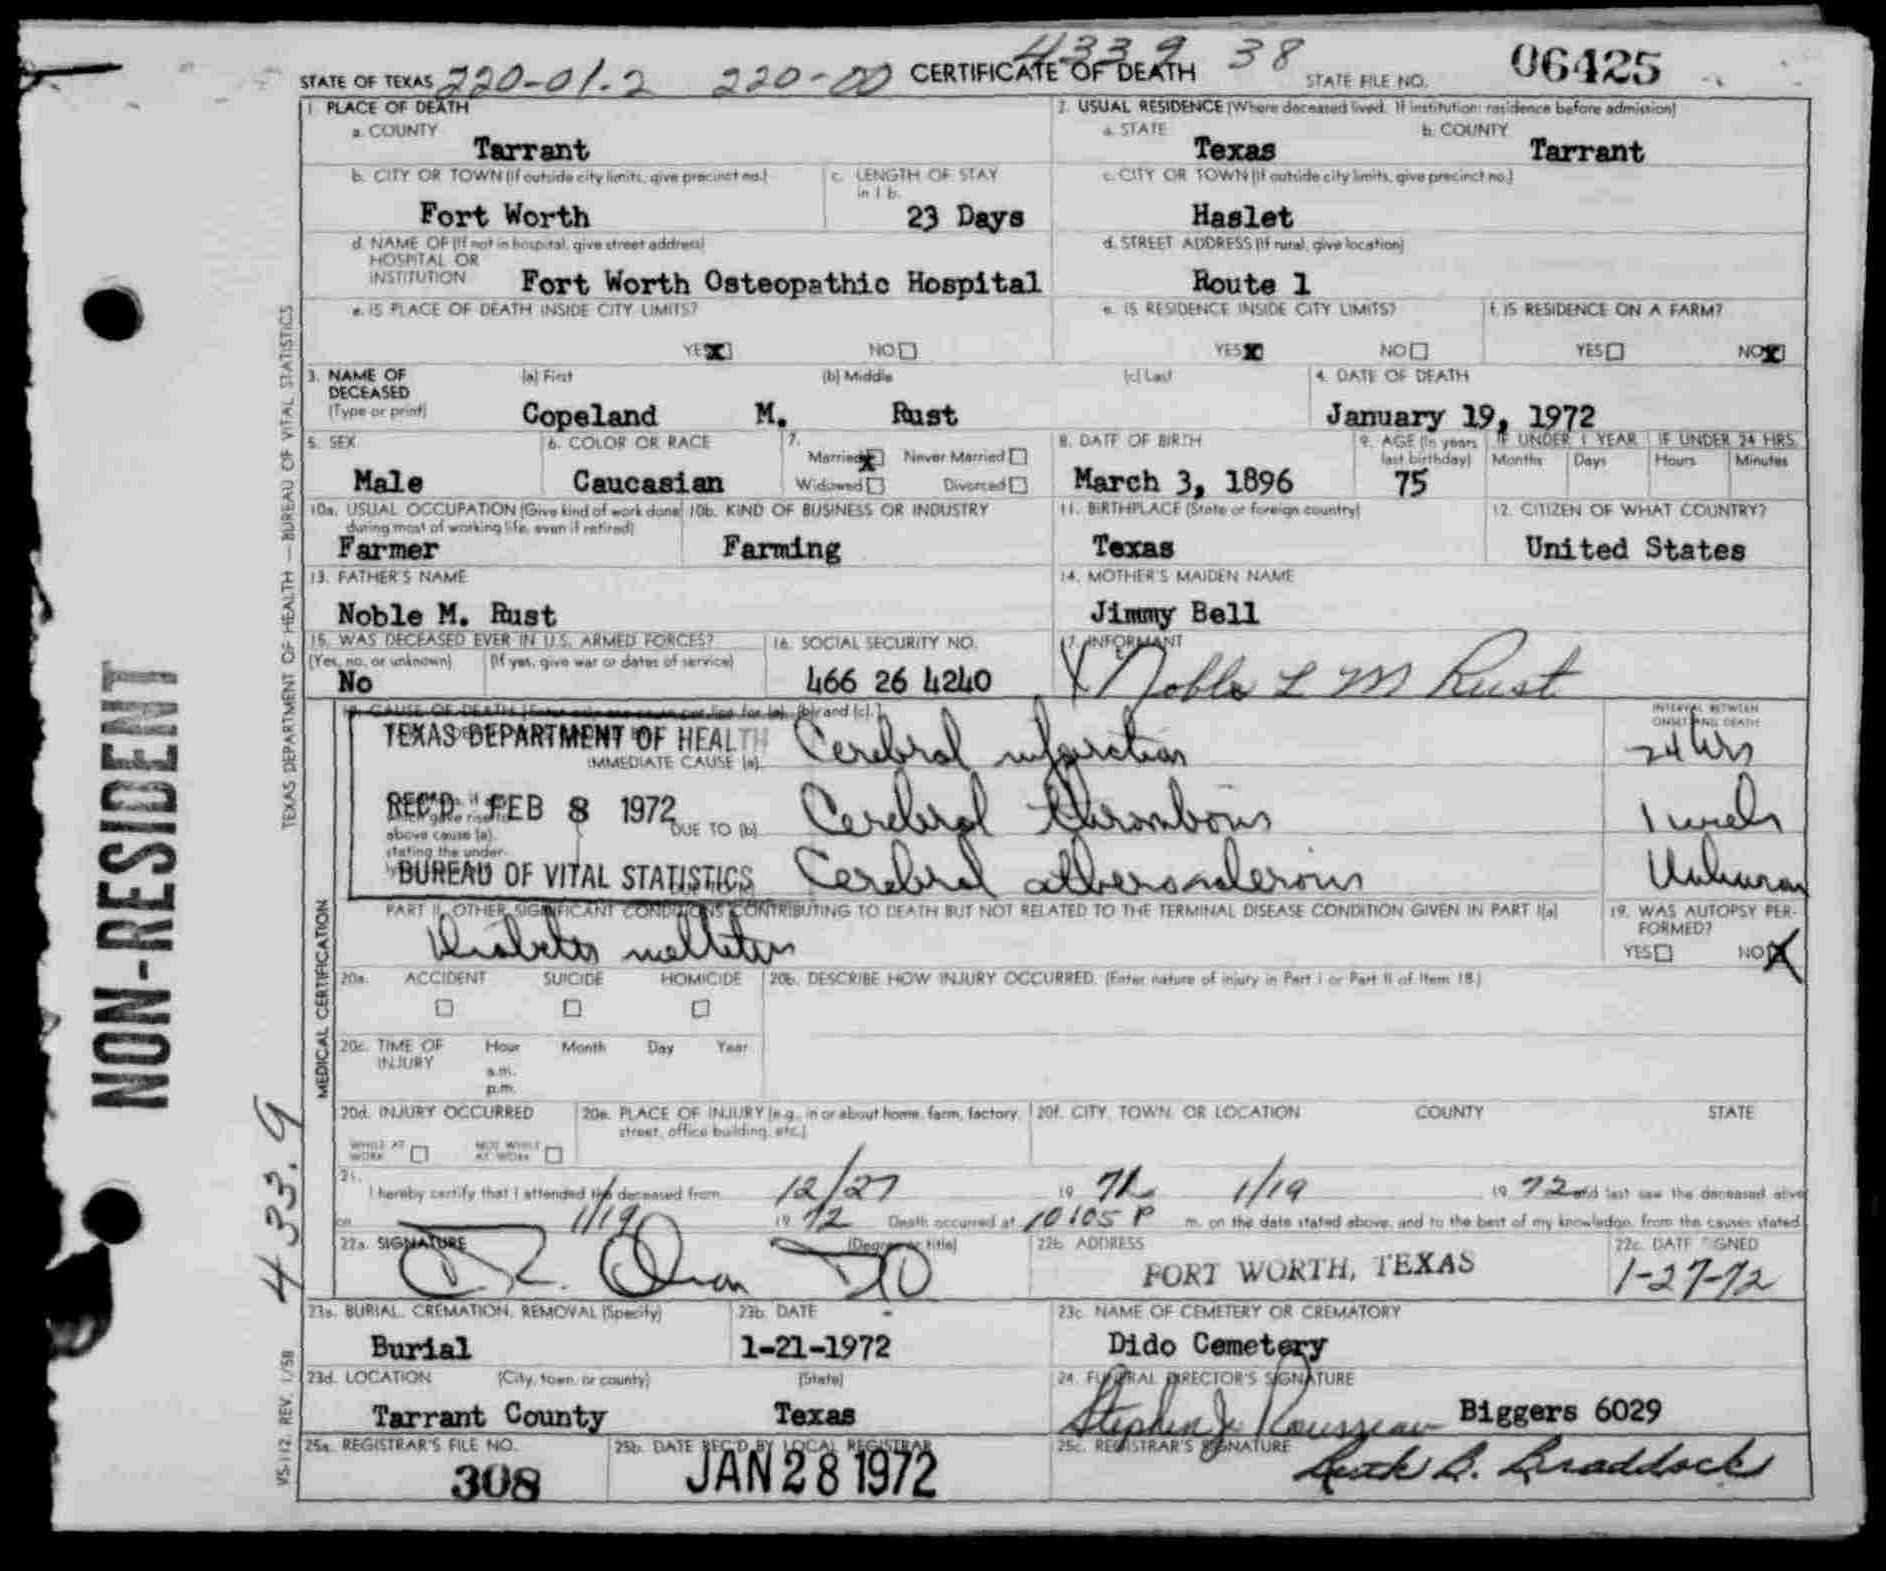 4339 38
STATE OF TEXAS 220-01.2 220-00 CERTIFICATE OF DEATH STATE FILE NO. 06425
1. PLACE OF DEATH
a. COUNTY
Tarrant
2. USUAL RESIDENCE (Where deceased lived. If institution: residence before admission)
a. STATE b. COUNTY
Texas Tarrant
b. CITY OR TOWN (If outside city limits, give precinct no.) c. LENGTH OF STAY in 1 b.
Fort Worth 23 Days
c. CITY OR TOWN (If outside city limits, give precinct no.)
Haslet
d. NAME OF (If not in hospital, give street address)
HOSPITAL OR
INSTITUTION Fort Worth Osteopathic Hospital
d. STREET ADDRESS (If rural, give location)
Route 1
e. IS PLACE OF DEATH INSIDE CITY LIMITS?
YES X NO
e. IS RESIDENCE INSIDE CITY LIMITS? f. IS RESIDENCE ON A FARM?
YES X NO YES NO X
3. NAME OF DECEASED (Type or print) (a) First (b) Middle (c) Last 4. DATE OF DEATH
Copeland M. Rust January 19, 1972
5. SEX 6. COLOR OR RACE 7. Married X Never Married Widowed Divorced
Male Caucasian
8. DATE OF BIRTH 9. AGE (In years last birthday) IF UNDER 1 YEAR IF UNDER 24 HRS.
Months Days Hours Minutes
March 3, 1896 75
10a. USUAL OCCUPATION (Give kind of work done during most of working life, even if retired) 10b. KIND OF BUSINESS OR INDUSTRY
Farmer Farming
11. BIRTHPLACE (State or foreign country) 12. CITIZEN OF WHAT COUNTRY?
Texas United States
13. FATHER'S NAME 14. MOTHER'S MAIDEN NAME
Noble M. Rust Jimmy Bell
15. WAS DECEASED EVER IN U.S. ARMED FORCES? 16. SOCIAL SECURITY NO. 17. INFORMANT
(Yes, no, or unknown) (If yes, give war or dates of service)
No 466 26 4240 X Noble L M Rust
18. CAUSE OF DEATH [Enter only one cause per line for (a), (b) and (c).]
INTERVAL BETWEEN
ONSET AND DEATH
TEXAS DEPARTMENT OF HEALTH
IMMEDIATE CAUSE (a) Cerebral infarction 24 hrs
REC'D FEB 8 1972
which gave rise to
above cause (a),
stating the under-
DUE TO (b) Cerebral thrombosis 1 week
BUREAU OF VITAL STATISTICS
Cerebral atherosclerosis Unknown
PART II. OTHER SIGNIFICANT CONDITIONS CONTRIBUTING TO DEATH BUT NOT RELATED TO THE TERMINAL DISEASE CONDITION GIVEN IN PART I(a)
Diabetes mellitus
19. WAS AUTOPSY PER-
FORMED?
YES NO X
20a. ACCIDENT SUICIDE HOMICIDE 20b. DESCRIBE HOW INJURY OCCURRED. (Enter nature of injury in Part I or Part II of Item 18.)
20c. TIME OF INJURY Hour Month Day Year
a.m.
p.m.
20d. INJURY OCCURRED 20e. PLACE OF INJURY (e.g., in or about home, farm, factory, street, office building, etc.) 20f. CITY, TOWN, OR LOCATION COUNTY STATE
WHILE AT WORK NOT WHILE AT WORK
21. I hereby certify that I attended the deceased from 12/27 19 71 1/19 19 72 and last saw the deceased alive
on 1/19 19 72 Death occurred at 10:05 P m. on the date stated above, and to the best of my knowledge, from the causes stated.
22a. SIGNATURE (Degree or title) 22b. ADDRESS 22c. DATE SIGNED
DO FORT WORTH, TEXAS 1-27-72
23a. BURIAL, CREMATION, REMOVAL (Specify) 23b. DATE 23c. NAME OF CEMETERY OR CREMATORY
Burial 1-21-1972 Dido Cemetery
23d. LOCATION (City, town, or county) (State) 24. FUNERAL DIRECTOR'S SIGNATURE
Tarrant County Texas Stephen J. Rousseau Biggers 6029
25a. REGISTRAR'S FILE NO. 25b. DATE REC'D BY LOCAL REGISTRAR 25c. REGISTRAR'S SIGNATURE
308 JAN 28 1972 Ruth B. Braddock
NON-RESIDENT
433.9
TEXAS DEPARTMENT OF HEALTH — BUREAU OF VITAL STATISTICS
MEDICAL CERTIFICATION
VS-112 REV. 1/58